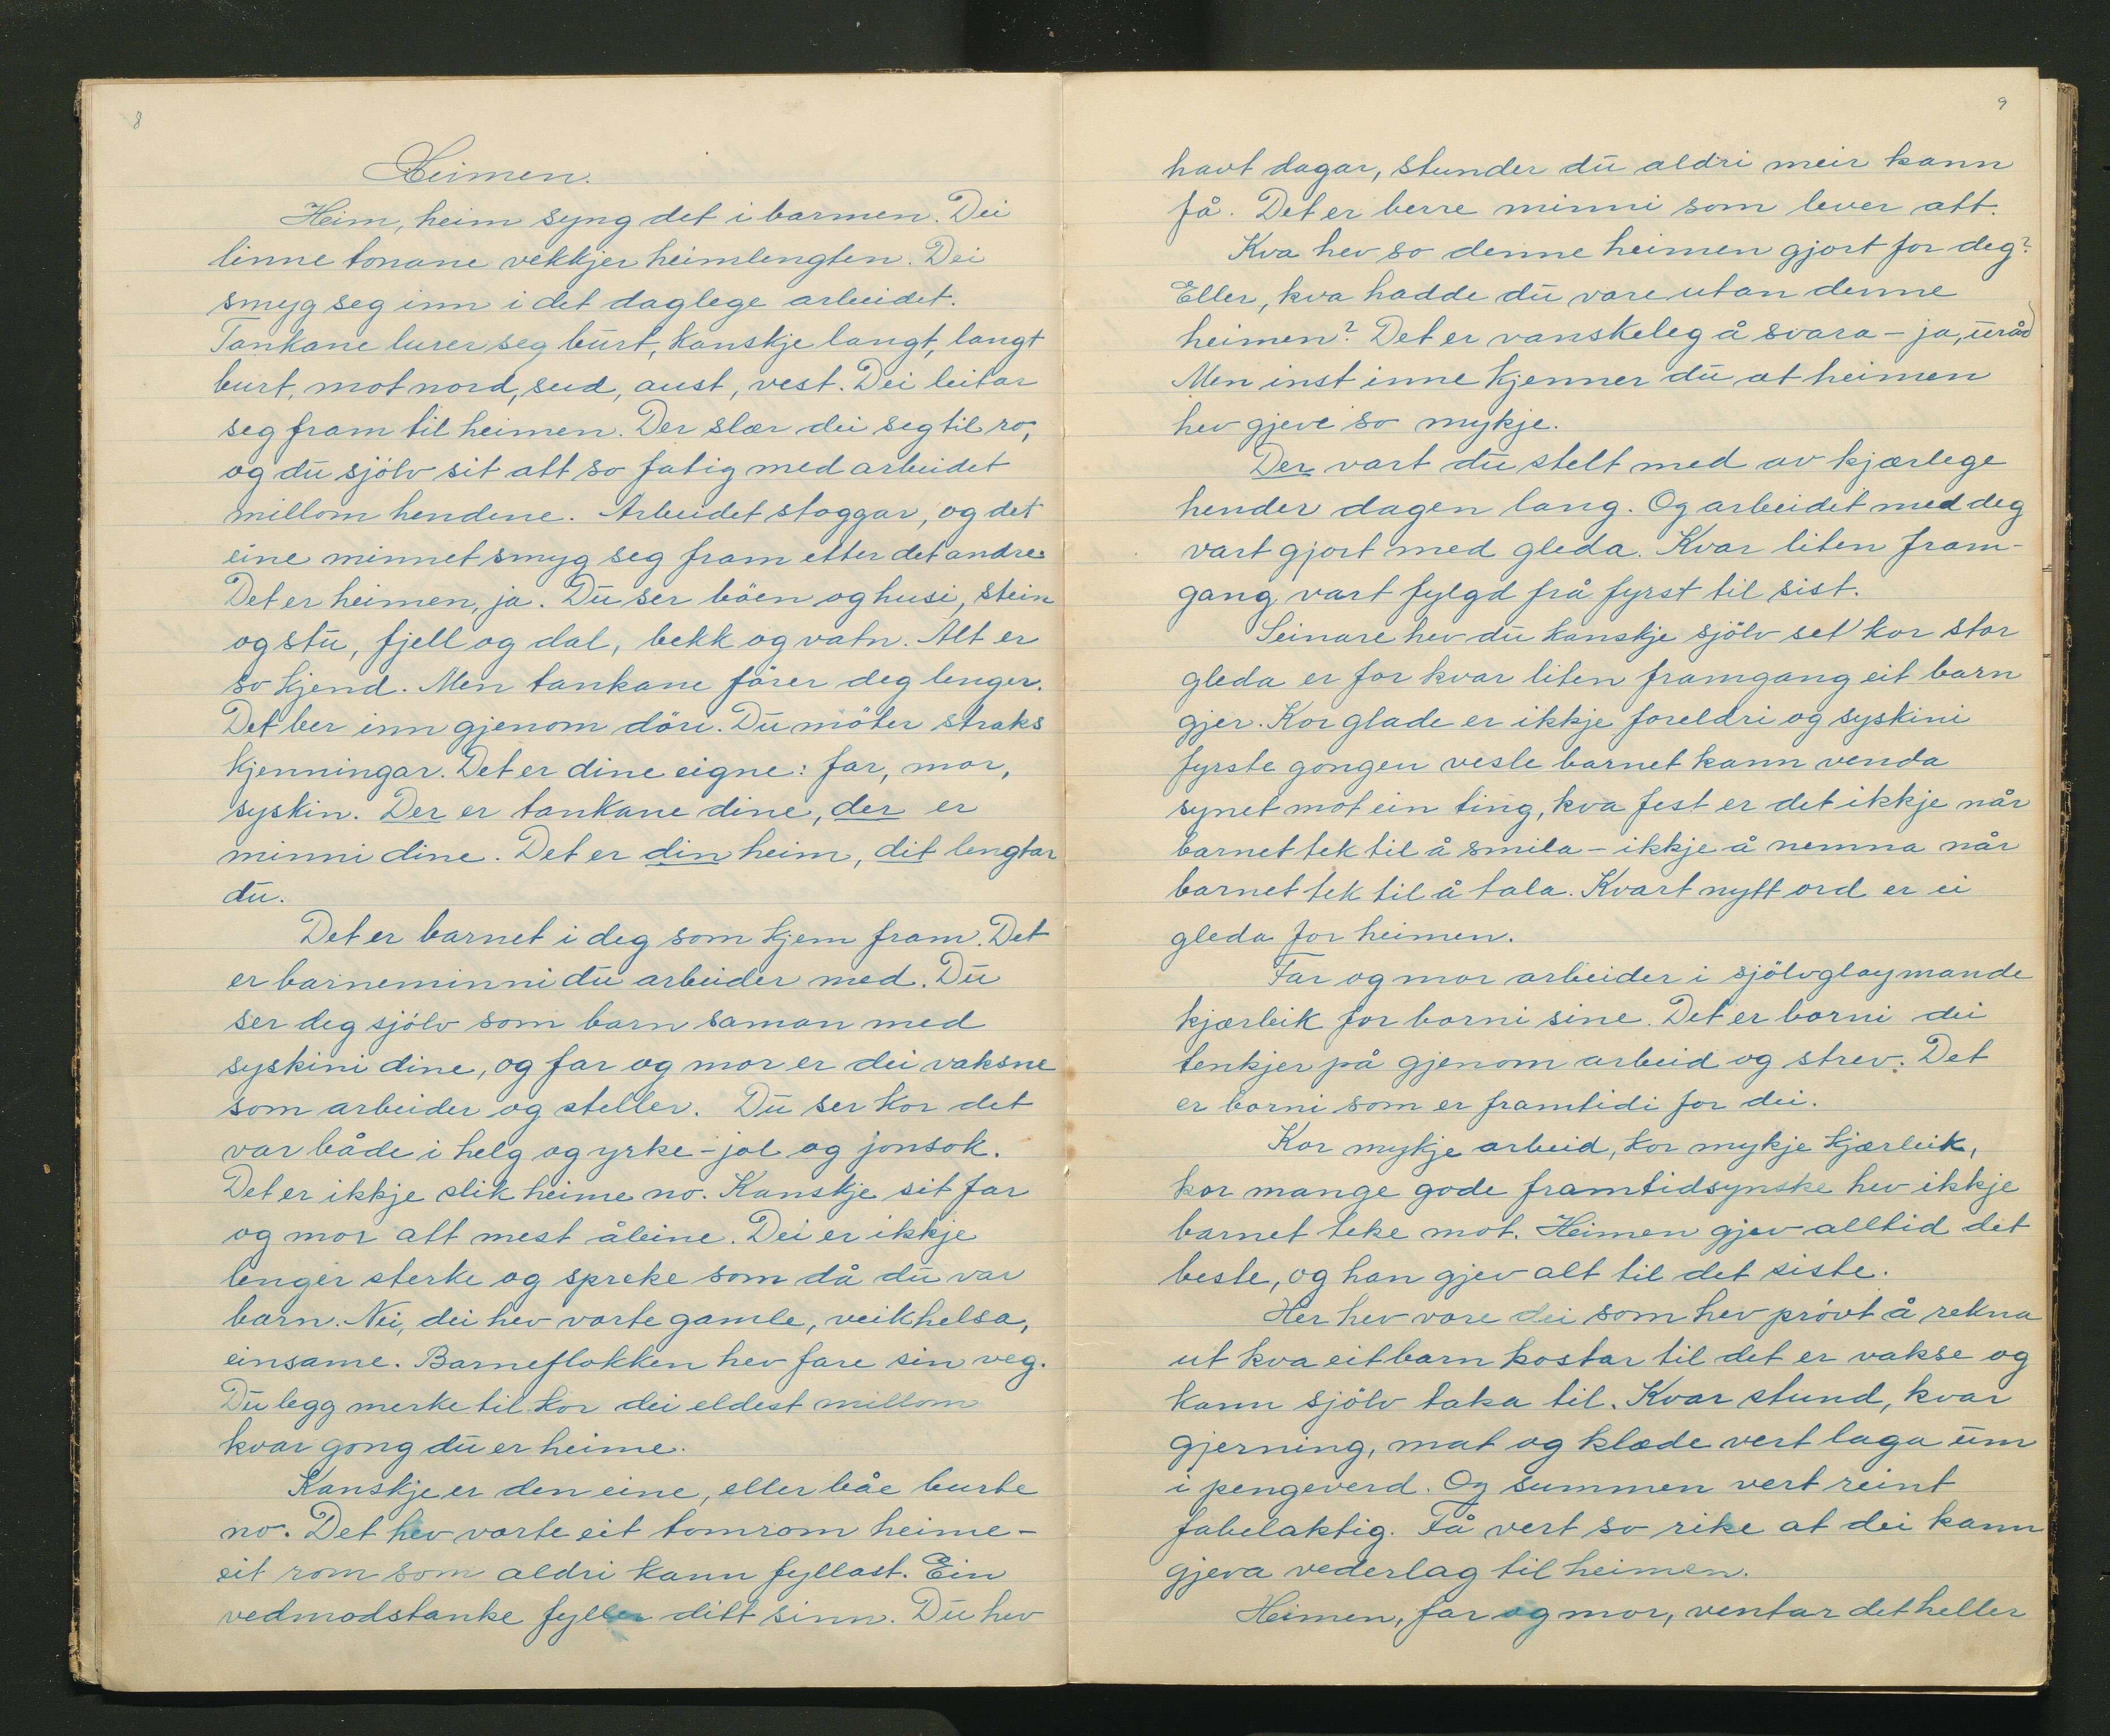 8
Heimen.
Heim, heim syng det i barmen. Dei
linne tonane vekkjer heimlengten. Dei
smyg seg inn i det daglege arbeidet.
Tankane lurer seg burt, kanskje langt, langt
burt, mot nord, sud, aust, vest. Dei leitar
seg fram til heimen. Der slær dei seg til ro,
og du sjölv sit att so fatig med arbeidet
millom hendene. Arbeidet stoggar, og det
eine minnet smyg seg fram etter det andre:
Det er heimen, ja. Du ser böen og husi, stein
og stu, fjell og dal, bekk og vatn. Alt er
so kjend. Men tankane förer deg lenger.
Det ber inn gjenom döri. Du möter straks
kjenningar. Det er dine eigne: far, mor,
syskin. Der er tankane dine, der er
minni dine. Det er din heim, dit lengtar
du.
Det er barnet i deg som kjem fram. Det
er barneminni du arbeider med. Du
ser deg sjölv som barn saman med
syskini dine, og far og mor er dei vaksne
som arbeider og steller. Du ser kor det
var både i helg og yrke - jol og jonsok.
Det er ikkje slik heime no. Kanskje sit far
og mor att mest åleine. Dei er ikkje
lenger sterke og spreke som då du var
barn. Nei, dei hev vorte gamle, veikhelsa,
einsame. Barneflokken hev fare sin veg.
Du legg merke til kor dei eldest millom
kvar gong du er heime.
Kanskje er den eine, eller båe burte
no. Det hev vorte eit tomrom heime -
eit rom som aldri kann fyllast. Ein
vedmodstanke fyller ditt sinn. Du hev
9
havt dagar, stunder du aldri meir kann
få. Det er berre minni som lever att.
Kva hev so denne heimen gjort for deg?
Eller, kva hadde du vore utan denne
heimen? Det er vanskeleg å svara - ja, uråd
Men inst inne kjenner du at heimen
hev gjeve so mykje.
Der vart du stelt med av kjærlege
hender dagen lang. Og arbeidet med deg
vart gjort med gleda. Kvar liten fram-
gang vart fylgd frå fyrst til sist.
Seinare hev du kanskje sjölv set kor stor
gleda er for kvar liten framgang eit barn
gjer. Kor glade er ikkje foreldri og syskini
fyrste gongen vesle barnet kann venda
synet mot ein ting, kva fest er det ikkje når
barnet tek til å smila - ikkje å nemna når
barnet tek til å tala. Kvart nytt ord er ei
gleda for heimen.
Far og mor arbeider i sjölvgløymande
kjærleik for borni sine. Det er borni dei
tenkjer på gjenom arbeid og strev. Det
er borni som er framtidi for dei.
Kor mykje arbeid, kor mykje kjærleik,
kor mange gode framtidsynske hev ikkje
barnet teke mot. Heimen gjev alltid det
beste, og han gjev alt til det siste.
Her hev vore dei som hev prövt å rekna
ut kva eit barn kostar til det er vakse og
kann sjölv taka til. Kvar stund, kvar
gjerning, mat og klæde vert laga um
i pengeverd. Og summen vert reint
fabelaktig. Få vert so rike at dei kann
gjeva vederlag til heimen.
Heimen, far og mor, ventar det heller